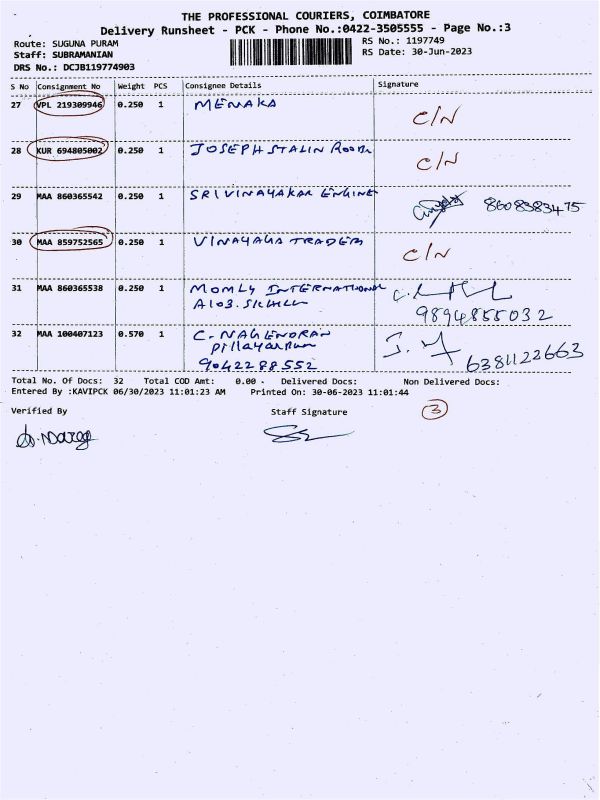 THE PROFESSIONAL COURIERS, COIMBATORE
Delivery Runsheet - PCK - Phone No.:0422-3505555 - Page No.:3
Route: SUGUNA PURAM
RS No.: 1197749
Staff: SUBRAMANIAN
RS Date: 30-Jun-2023
DRS No.: DCJB119774903
S No Consignment No Weight PCS Consignee Details Signature
27 VPL 219309946 0.250 1 MENAKA C/N
28 KUR 694805002 0.250 1 JOSEPH STALIN ROOM C/N
29 MAA 860365542 0.250 1 SRIVINAYAKAR ENGINE 8608383475
30 MAA 859752565 0.250 1 VINAYAGA TRADER C/N
31 MAA 860365538 0.250 1 MOMLY INTERNATIONAL
A103.
9894855032
32 MAA 100407123 0.570 1 C. NAGENDRAN
6381122663
9042288552
Total No. Of Docs: 32 Total COD Amt: 0.00 Delivered Docs: Non Delivered Docs:
Entered By :KAVIPCK 06/30/2023 11:01:23 AM Printed On: 30-06-2023 11:01:44
Verified By Staff Signature 3